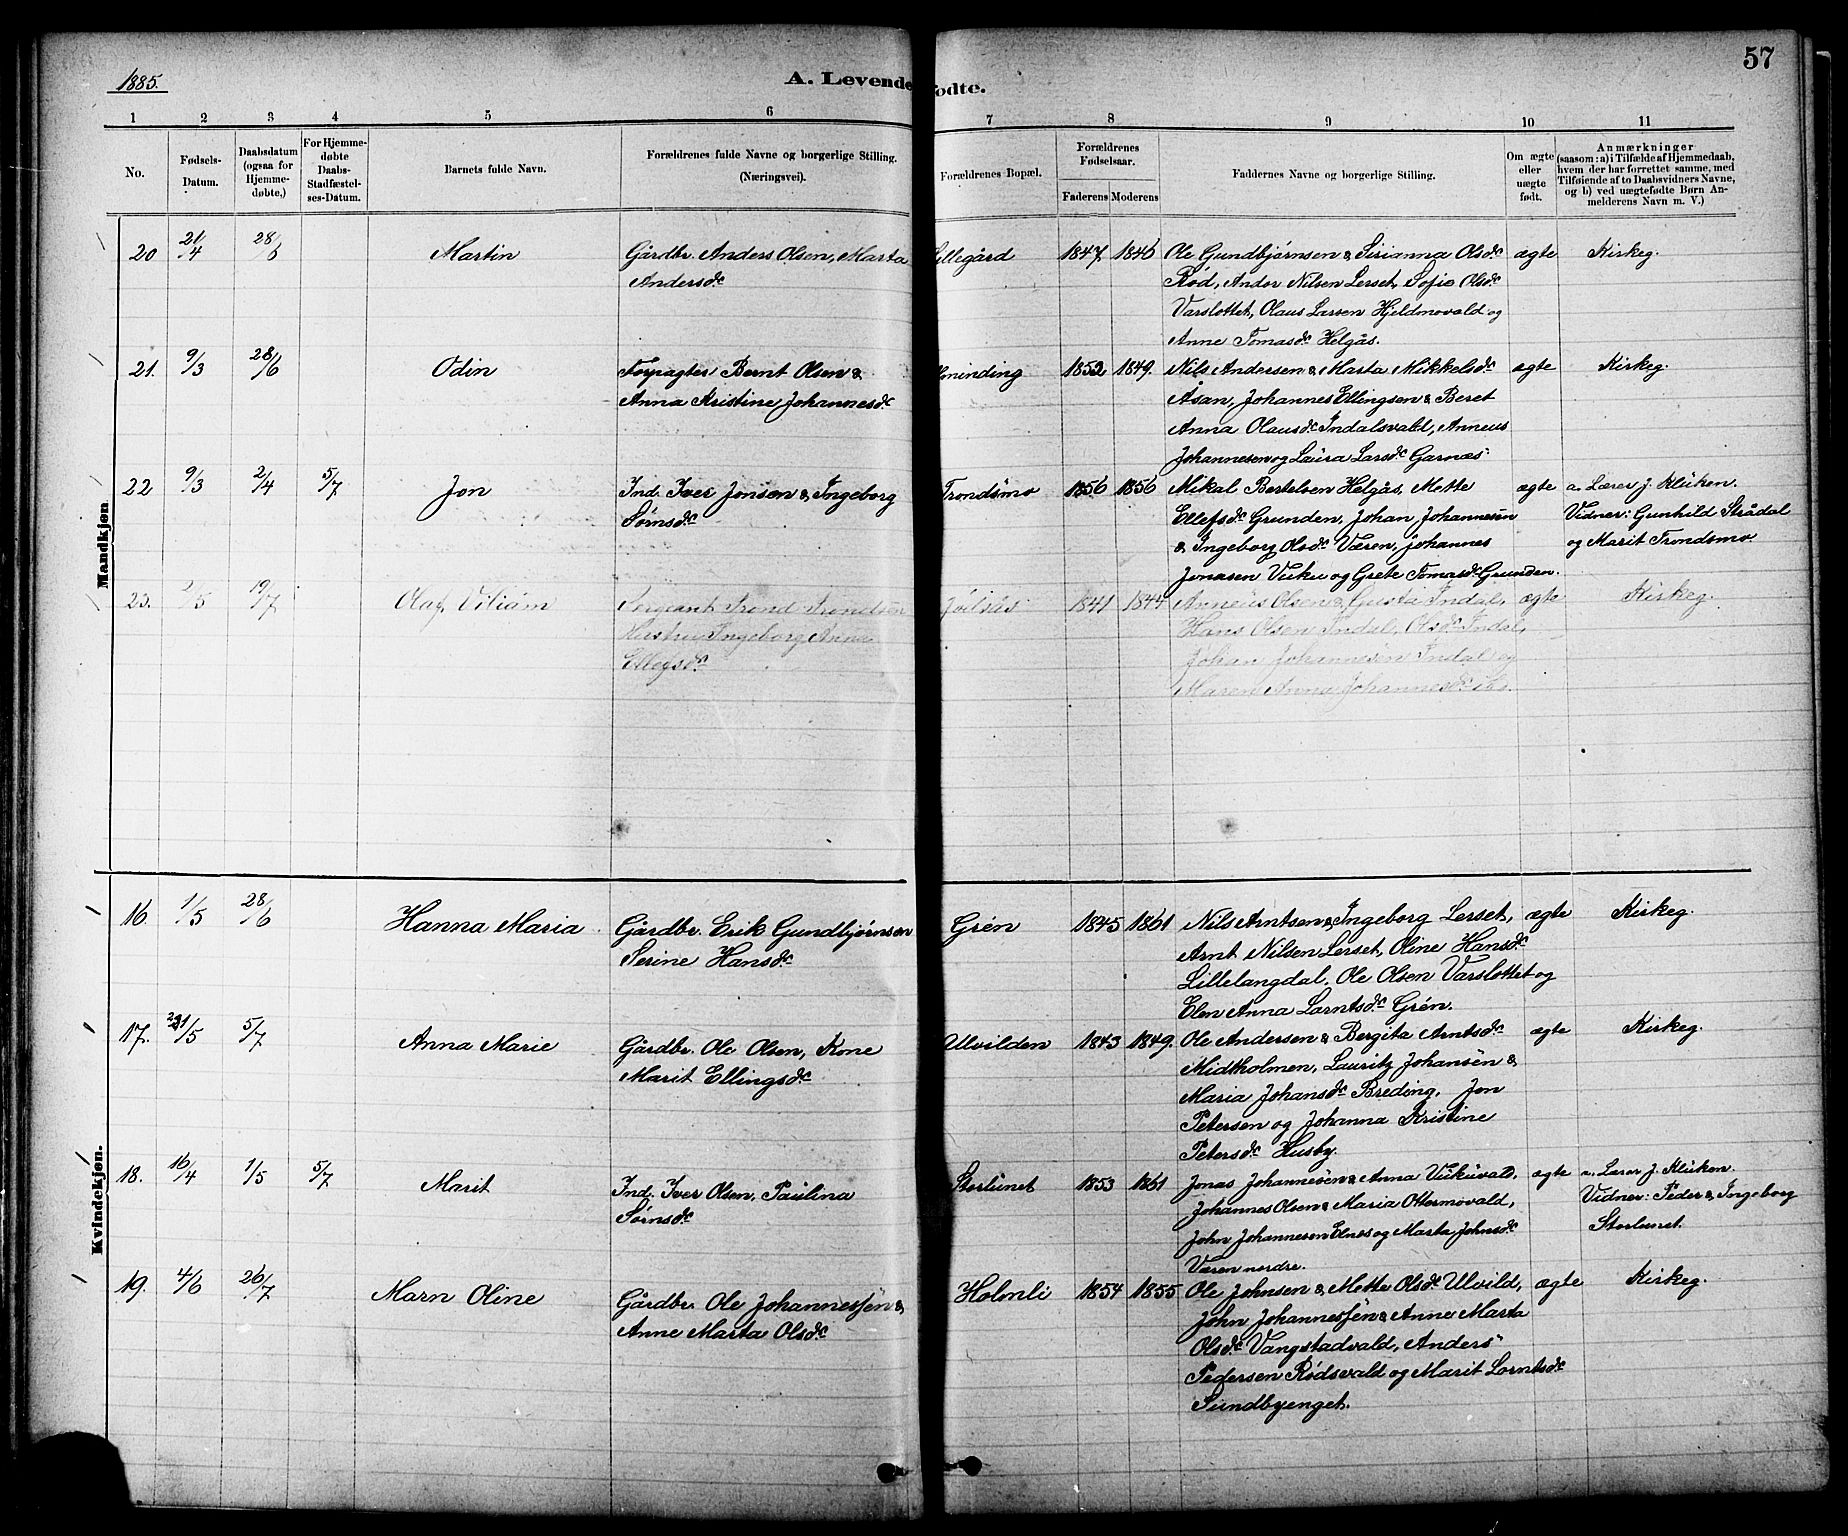 1885.
A. Levende
ødte.
57
1
2
3
4
5
6
7
8
9
10
11
No.
Fødsels-
Datum.
Daabsdatum
(ogsaa for
Hjemme-
døbte,)
For Hjemme-
døbte
Daabs-
Stadfæstel-
ses-Datum.
Barnets fulde Navn.
Forældrenes fulde Navne og borgerlige Stilling.
(Næringsvei).
Forældrenes Bopæl.
Forældrenes
Fødselsaar.
Faderens Moderens
Faddernes Navne og borgerlige Stilling.
Om ægte
eller
uægte
født.
Anmærkninger
(saasom: a) i Tilfælde af Hjemmedaab,
hvem der har forrettet samme, med
Tilføiende af to Daabsvidners Navne,
og b) ved uægtefødte Børn An-
melderens Navn m. V.)
Mandkjøn
20 21/4 28/6 Martin Gårdbr. Anders Olsen, Marta
Andersdc
llegård 1847 1846 Ole Gundbjørnsen & Sirianna Olsdc ægte Kirkeg.
Rød, Andor Nilsen Lerset, Sofie Olsdc
Varslottet, Olaus Larsen Hjeldmovald og
Anne Tomasdc Helgås.
21. 9/3 28/6 Odin Forpagter Bernt Olsen &
Anna Kristine Johannesdc
ninding 1852 1849. Nils Andersen & Marta Mikkelsdc ægte Kirkeg.
Åsan, Johannes Ellingsen & Beret
Anna Olausdc Indalsvald, Anneus
Johannesen og Laura Larsdc Garnæs
22 9/3 2/4 5/7 Jon Ind. Iver Jonsen & Ingeborg
Sørnsdc
Trondsmo 1856 1856 Mikal Bertelsen Helgås, Mette ægte a. Lærer J. Klüken.
Ellefsdc Grunden, Johan Johannesen Vidner: Gunhild Strådal
& Ingeborg Olsdc Væren, Johannes og Marit Trondsmo.
Jonasen Vuku og Grete Tomasdc Grunden.
23. 2/5 19/7 Olaf Viliám Sergeant Trond Trondsen
Hustru Ingeborg Anna
Ellefsdc
Jølsås 1841 1844 Anneus Olsen & Gusta Indal, ægte Kirkeg.
Hans Olsen Indal, Olsdc Indal,
Johan Johannesen Indal og
Maren Anna Johannesdc ibd.
Kvindekjøn.
16. 1/5 28/6 Hanna Maria Gårdbr. Erik Gundbjørnsen
Serine Hansdc
Grén 1845 1861 Nils Arntsen & Ingeborg Lerset, ægte Kirkeg.
Arnt Nilsen Lerset, Oline Hansdc
Lillelangdal. Ole Olsen Varslottet og
Elen Anna Lorntsdc Grén.
17. 21/5 5/7 Anna Marie Gårdbr. Ole Olsen, Kone
Marit Ellingsdc
Ulvilden 1843 1849. Ole Andersen & Bergita Arntsdc ægte Kirkeg.
Midtholmen, Lauritz Johansen &
Maria Johansdc Breding. Jon
Petersen og Johanna Kristine
Petersdc Husby.
18. 16/4 1/5 5/7 Marit Ind. Iver Olsen, Paulina
Sørnsdc
Storlunet 1853 1861 Jonas Johannesen & Anna Vukuvald, ægte a. Lærer J. Klüken.
Johannes Olsen & Maria Ottermovald, Vidner: Peder & Ingeborg
John Johannesen Elnes og Marta Johnsdc Storlunet.
Væren nordre.
19. 4/6 26/7 Marn Oline Gårdbr. Ole Johannesjen &
Anne Marta Olsdc
Holmli 1854 1855 Ole Johnsen & Mette Olsdc Ulvild, ægte Kirkeg.
John Johannesjen & Anne Marta
Olsdc Vangstadvald, Anders
Pedersen Rødsvald og Marit Lorntsdc
Sundbyenget.